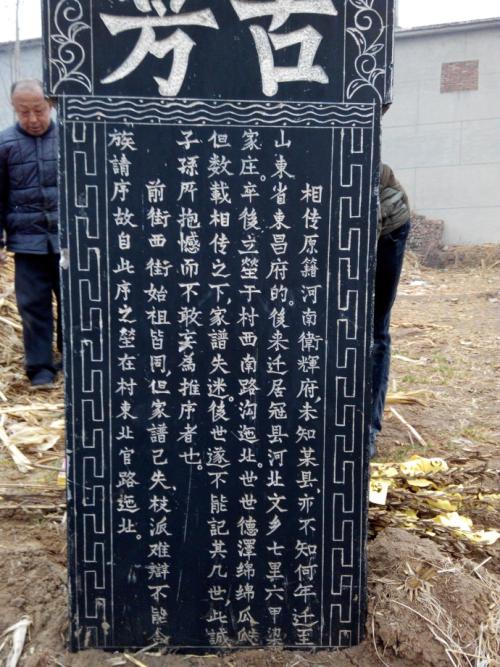 古
芳
相传原籍河南衛輝府,未知某县,亦不知何年迁至
山東省東昌府的。後来迁居冠县河北文乡七里六甲梁
家庄。卒後立塋于村西南路沟迤北。世世德泽绵绵瓜瓞
但数载相传之下,家譜失迷。後世遂不能記其几世,此誠
子孫所抱憾而不敢妄為推序者也。
前街西街始祖皆同,但家譜已失,枝派难辯不能合
族請序故自此序之塋在村東北官路迤北。